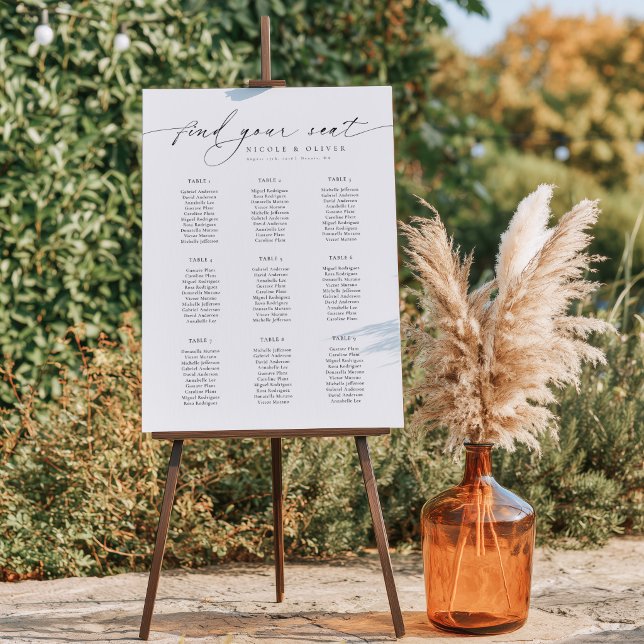 find your seat
NICOLE & OLIVER
TABLE 1
Gabriel Anderson
David Anderson
Annabelle Lee
Gustave Plans
Caroline Plans
Miguel Rodriguez
Rosa Rodriguez
Donatella Murano
Victor Murano
Michelle Jefferson
TABLE 2
Miguel Rodriguez
Rosa Rodriguez
Donatella Murano
Victor Murano
Michelle Jefferson
Gabriel Anderson
David Anderson
Annabelle Lee
Gustave Plans
Caroline Plans
TABLE 3
Michelle Jefferson
Gabriel Anderson
David Anderson
Annabelle Lee
Gustave Plans
Caroline Plans
Miguel Rodriguez
Rosa Rodriguez
Donatella Murano
Victor Murano
TABLE 4
Gustave Plans
Caroline Plans
Miguel Rodriguez
Rosa Rodriguez
Donatella Murano
Victor Murano
Michelle Jefferson
Gabriel Anderson
David Anderson
Annabelle Lee
TABLE 5
Gabriel Anderson
David Anderson
Annabelle Lee
Gustave Plans
Caroline Plans
Miguel Rodriguez
Rosa Rodriguez
Donatella Murano
Victor Murano
Michelle Jefferson
TABLE 6
Miguel Rodriguez
Rosa Rodriguez
Donatella Murano
Victor Murano
Michelle Jefferson
Gabriel Anderson
David Anderson
Annabelle Lee
Gustave Plans
Caroline Plans
TABLE 7
Donatella Murano
Victor Murano
Michelle Jefferson
Gabriel Anderson
David Anderson
Annabelle Lee
Gustave Plans
Caroline Plans
Miguel Rodriguez
Rosa Rodriguez
TABLE 8
Michelle Jefferson
Gabriel Anderson
David Anderson
Annabelle Lee
Gustave Plans
Caroline Plans
Miguel Rodriguez
Rosa Rodriguez
Donatella Murano
Victor Murano
TABLE 9
Gustave Plans
Caroline Plans
Miguel Rodriguez
Rosa Rodriguez
Donatella Murano
Victor Murano
Michelle Jefferson
Gabriel Anderson
David Anderson
Annabelle Lee